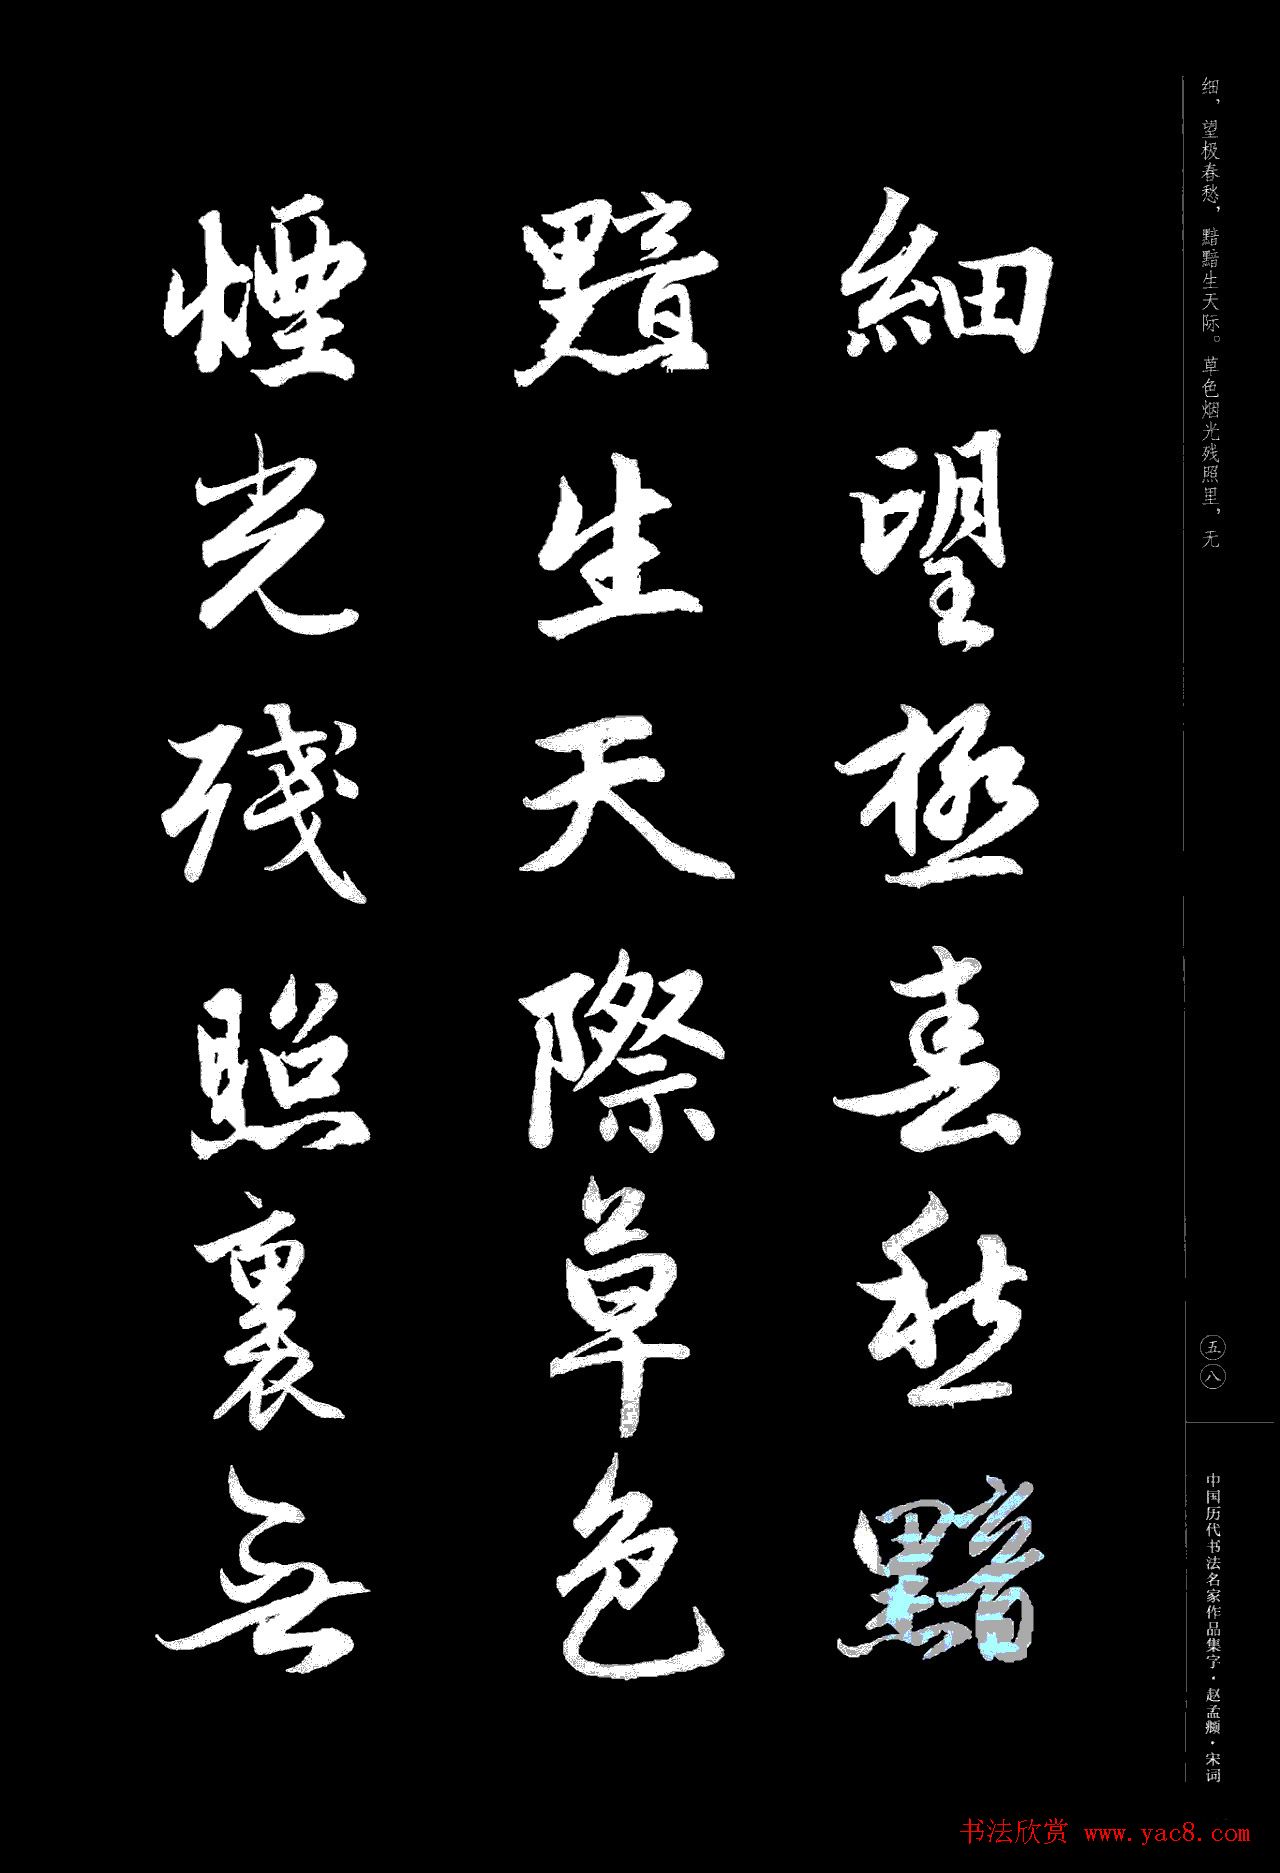 细，望极春愁，黯黯生天际。草色烟光残照里，无
細望極春愁黯
黯生天際草色
煙光殘照裏無
五八
中国历代书法名家作品集字·赵孟頫·宋词
书法欣赏 www.yac8.com